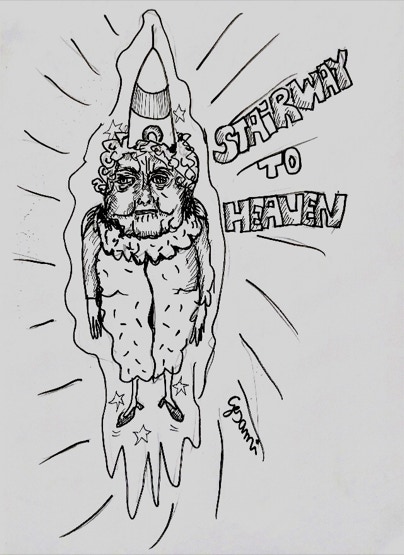 STAIRWAY
TO
HEAVEN